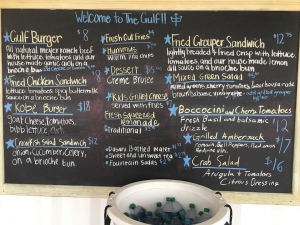 Welcome to The Gulf!!
Gulf Burger $8
All natural meyer ranch beef
with lettuce, tomatoes and our
house made sauce on a
brioche bun
Fried Chicken Sandwich
lettuce tomatoes spicy buttermilk
Sauce on a bun
Kobe Burger $18
Goat Cheese, Tomatoes,
bibb lettuce
Crawfish Salad Sandwich $12
onion, Cucumber, Celery,
on a brioche bun.
Fresh Cut Fries
Hummus
Warm
Dessert $5
Creme Brulee
Kids Grilled Cheese
Served with fries
Fresh Squeezed
Lemonade
Traditional
Dasani Bottled Water
Sweet and Unsweet tea
Fountain Sodas
Fried Grouper Sandwich $12
lightly breaded & fried crisp with lettuce
tomatoes and our house made lemon
aioli sauce on a brioche bun
Mixed Green Salad
mixed greens, cherry tomatoes,
balsamic vinaigrette
Boccocini and Cherry Tomatoes
Fresh Basil and balsamic
drizzle $12
Grilled Amberjack
romaine, Bell Peppers, Red onion
Crab Salad $16
Arugula & Tomatoes
Citrus Dressing